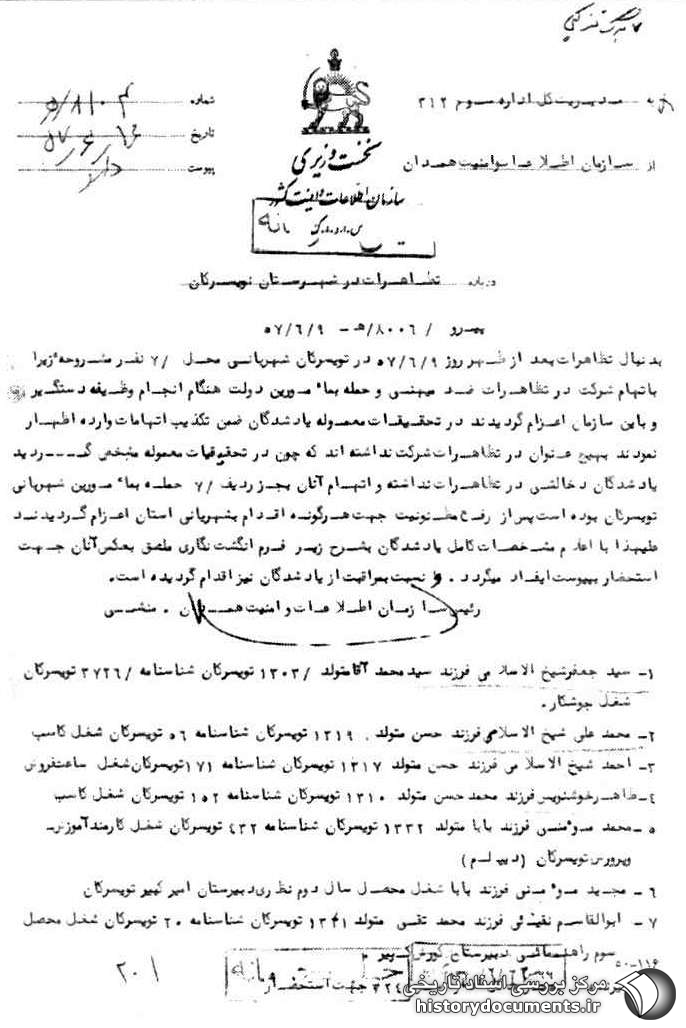 به مدیریت کل اداره سوم ۳۱۲
از سازمان اطلاعات و امنیت همدان
نخست وزیری
سازمان اطلاعات و امنیت کشور
س.ا.و.ا.ک
شماره
تاریخ
پیوست
درباره تظاهرات در شهرستان تویسرکان
پیرو /۸۰۰۶/هـ - ۵۷/۶/۹
بدنبال تظاهرات بعد از ظهر روز ۵۷/۶/۹ در تویسرکان شهربانی محل /۷ نفر مشروحه زیر را
باتهام شرکت در تظاهرات ضد میهنی و حمله بمأمورین دولت هنگام انجام وظیفه دستگیر
و باین سازمان اعزام گردیدند در تحقیقات معموله یادشدگان ضمن تکذیب اتهامات وارده اظهار
نمودند بهیچ عنوان در تظاهرات شرکت نداشته اند که چون در تحقیقات معموله مشخص گردید
یادشدگان دخالتی در تظاهرات نداشته و اتهام آنان بجز ردیف /۷ حمله بمأمورین شهربانی
تویسرکان بوده است پس از رفع مظنونیت جهت هرگونه اقدام بشهربانی استان اعزام گردیدند
علیهذا با اعلام مشخصات کامل یادشدگان بشرح زیر فرم انگشت نگاری ملصق بعکس آنان جهت
استحضار بپیوست ایفاد میگردد . و نسبت بمراقبت از یادشدگان نیز اقدام گردیده است.
رئیس سازمان اطلاعات و امنیت همدان . منشی
۱- سید جعفر شیخ الاسلامی فرزند سید محمد آقا متولد /۱۳۰۳ تویسرکان شناسنامه /۳۷۲۶ تویسرکان
شغل جوشکار.
۲- محمد علی شیخ الاسلامی فرزند حسن متولد ۱۳۱۹ تویسرکان شناسنامه ۵۶ تویسرکان شغل کاسب
۳- احمد شیخ الاسلامی فرزند حسن متولد ۱۳۱۷ تویسرکان شناسنامه ۱۷۱ تویسرکان شغل ساعتفروش
۴- طاهر خوشنویس فرزند محمد حسن متولد ۱۳۱۰ تویسرکان شناسنامه ۱۵۲ تویسرکان شغل کاسب
۵- محمد مؤمنی فرزند بابا متولد ۱۳۳۲ تویسرکان شناسنامه ۴۳۲ تویسرکان شغل کارمند آموزش
وپرورش تویسرکان (دیپلم)
۶- مجید مؤمنی فرزند بابا شغل محصل سال دوم نظری دبیرستان امیر کبیر تویسرکان
۷- ابوالقاسم فرزند محمد تقی متولد ۱۳۴۱ تویسرکان شناسنامه ۲۰ تویسرکان شغل محصل
سوم راهنمائی دبیرستان کورش کبیر
۵۰-۱۱۶
۳۲۴ جهت استحضار
۲۰۱
مرکز بررسی اسناد تاریخی
historydocuments.ir